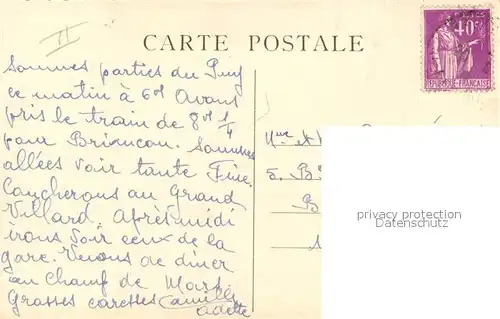 II
CARTE POSTALE
40c
POSTES
RÉPUBLIQUE FRANÇAISE
Sommes parties du Puy
ce matin à 6h Avons
pris le train de 8h 1/4
pour Briançon. Sommes
allées voir tante Fine.
Coucherons au Grand
Villard. Après midi
irons voir ceux de la
gare. Venons de diner
au Champ de Mars
Grosses caresses Camille
Odette
Mme et
5. B
B
1
privacy protection
Datenschutz